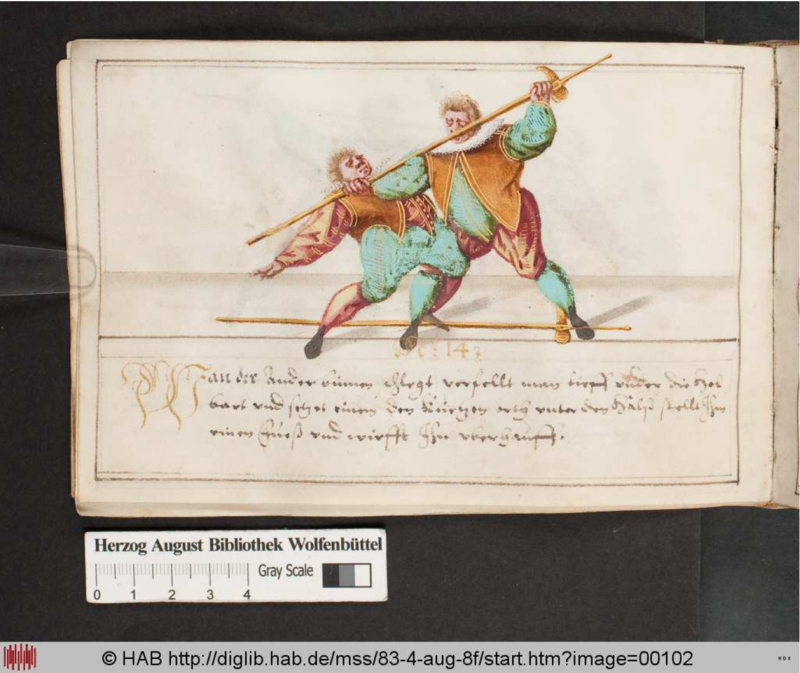 No: 14:
Wan der Ander binnen schlegt verfellt man tieff under die Hel
bart und setzet einem den kurtzen orth unter den Halß stellt Ihm
einen Fueß und wirfft Ihn uberhauff.
Herzog August Bibliothek Wolfenbüttel
Gray Scale
0 1 2 3 4
© HAB http://diglib.hab.de/mss/83-4-aug-8f/start.htm?image=00102